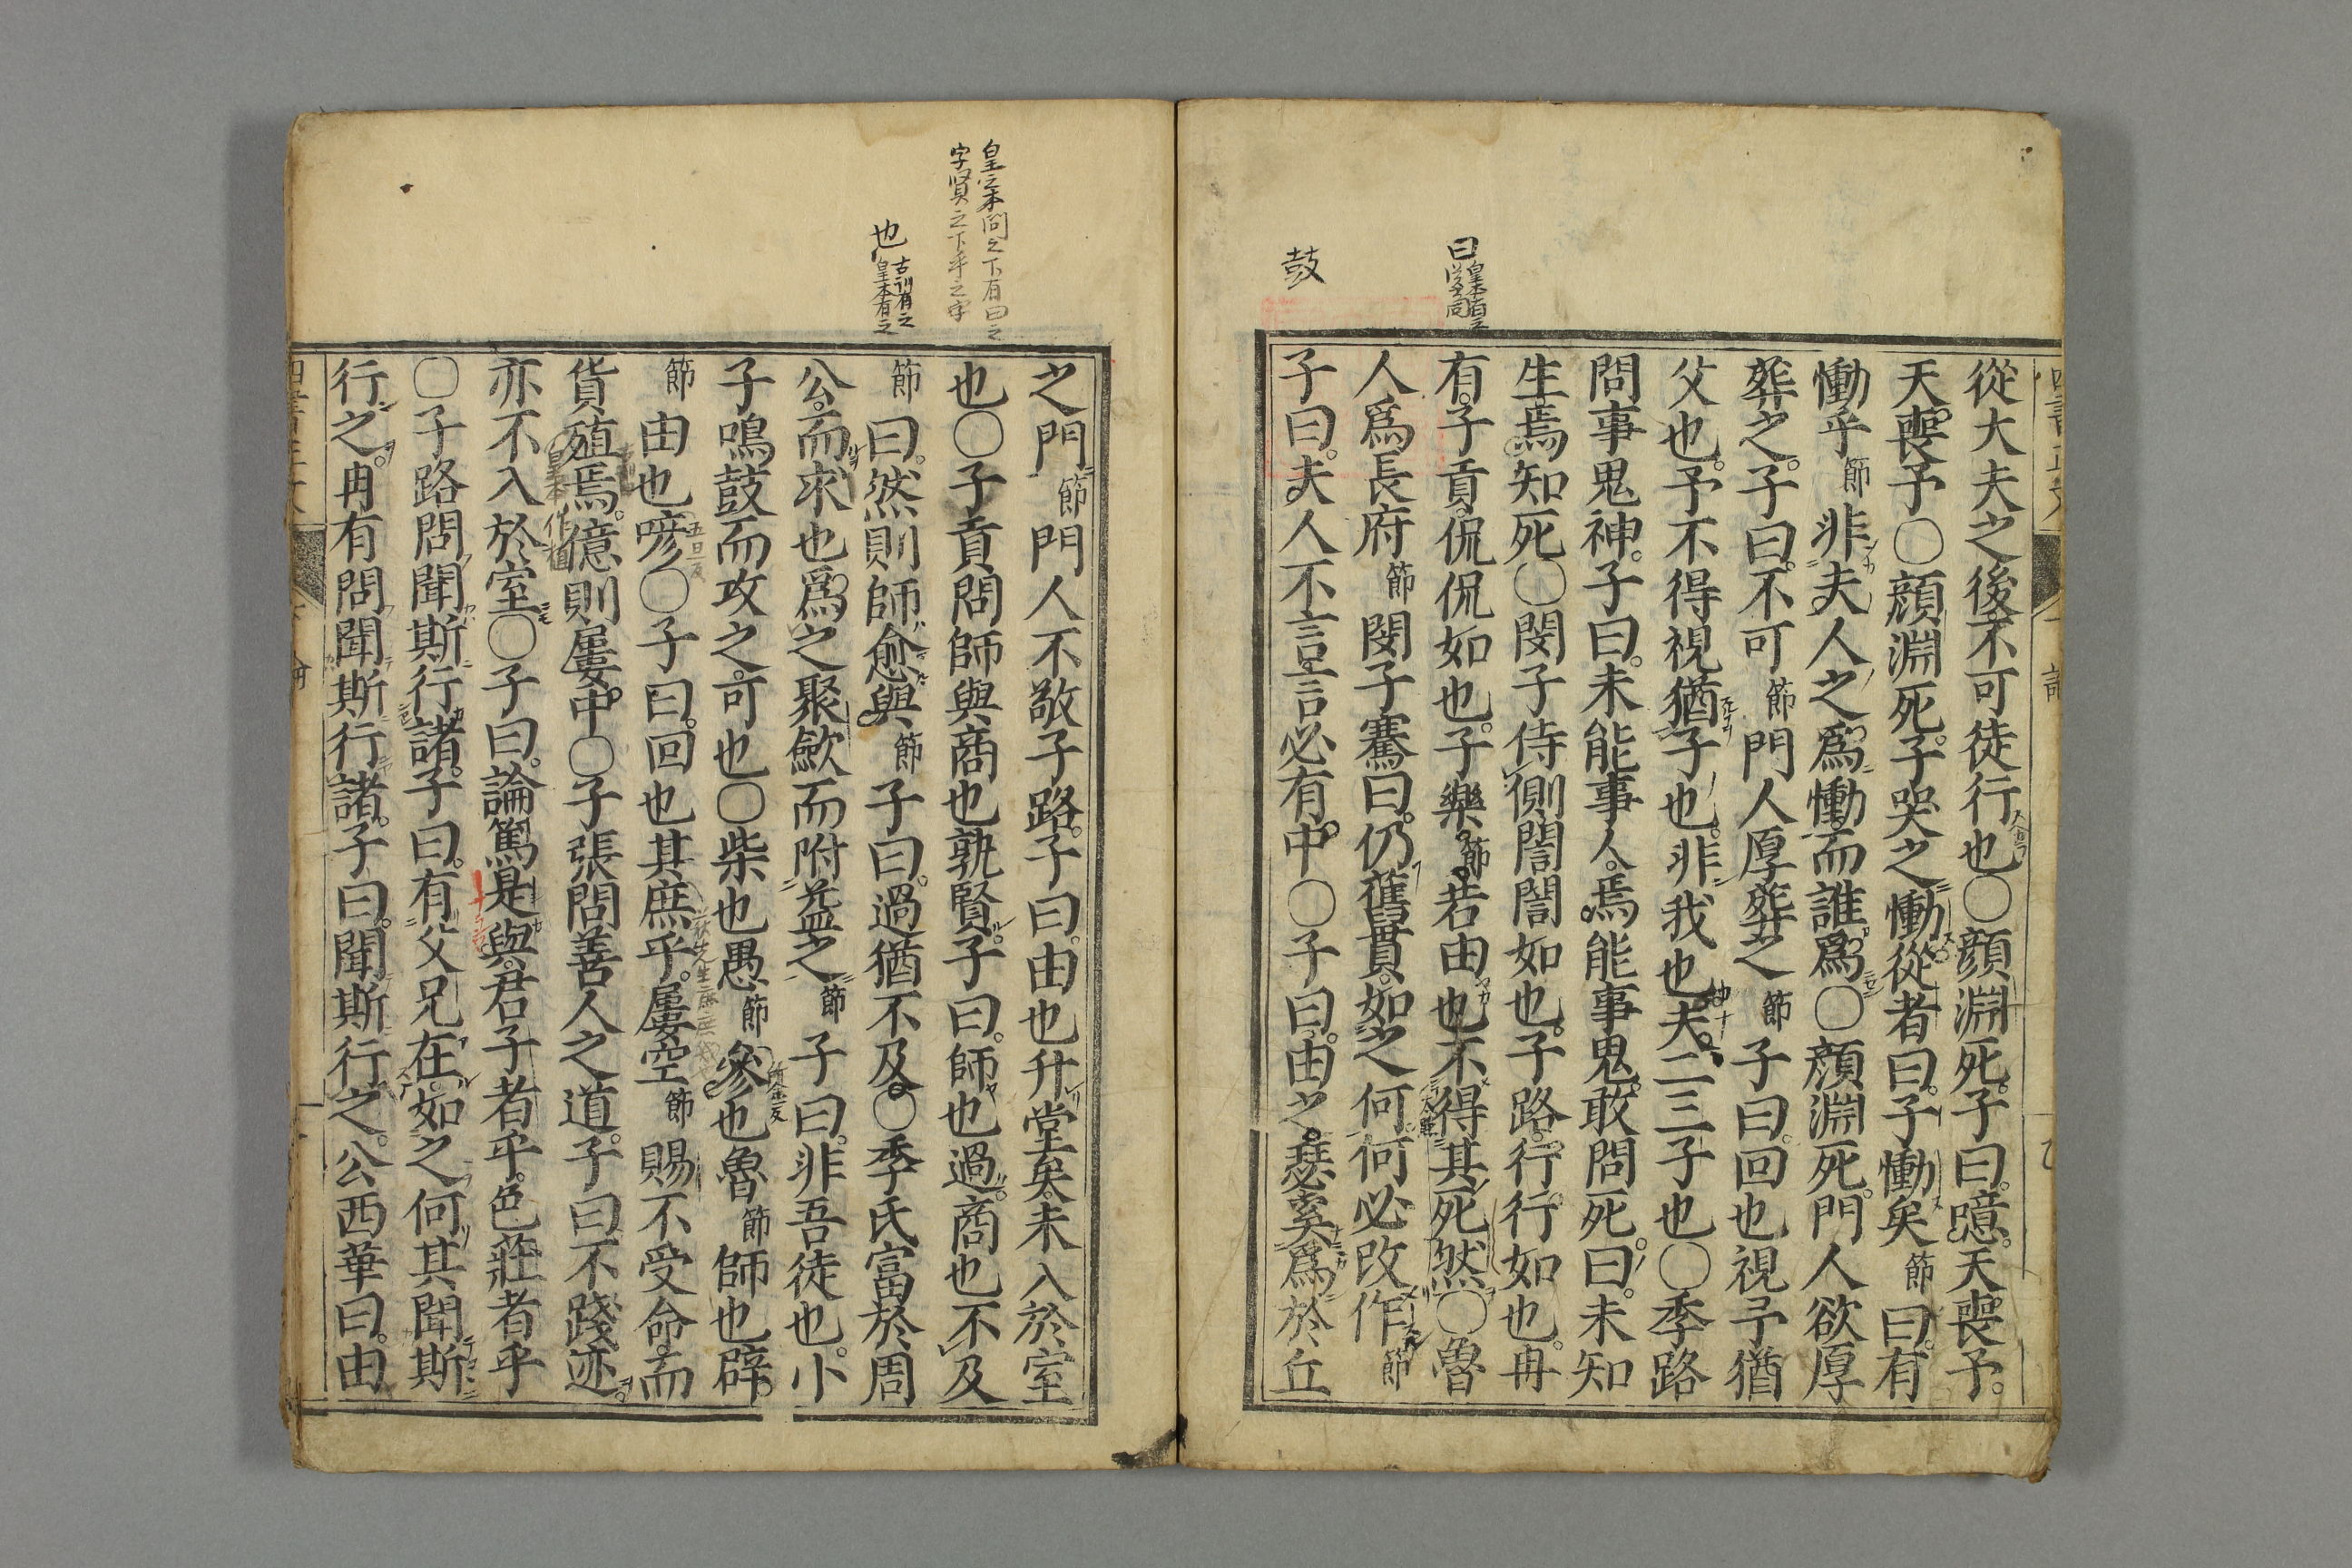 從大夫之後不可徒行也〇顔淵死。子曰。噫。天喪予。
天喪予〇顔淵死。子哭之慟。從者曰。子慟矣節曰。有
慟乎節非夫人之爲慟。而誰爲〇顔淵死。門人欲厚
葬之。子曰。不可節門人厚葬之節子曰。回也視予猶
父也。予不得視猶子也。非我也。夫。二三子也〇季路
問事鬼神。子曰。未能事人。焉能事鬼。敢問死。曰。未知
生。焉知死〇閔子侍側。誾誾如也。子路。行行如也。冉
有。子貢。侃侃如也。子樂。節若由也。不得其死然〇魯
人爲長府節閔子騫曰。仍舊貫。如之何。何必改作節
子曰。夫人不言。言必有中〇子曰。由之瑟。奚爲於丘
曰皇本有之
鼓
之門節門人不敬子路。子曰。由也升堂矣。未入於室
也〇子貢問師與商也孰賢。子曰。師也過。商也不及
節曰。然則師愈與節子曰。過猶不及。〇季氏富於周
公。而求也爲之聚歛而附益之節子曰。非吾徒也。小
子鳴鼓而攻之。可也〇柴也愚節參也魯節師也辟。
節由也喭〇子曰。回也其庶乎。屢空節賜不受命。而
貨殖焉。億則屢中〇子張問善人之道。子曰。不踐迹。
亦不入於室〇子曰。論篤是與。君子者乎。色莊者乎
〇子路問聞斯行諸。子曰。有父兄在。如之何其聞斯
行之。冉有問聞斯行諸。子曰。聞斯行之。公西華曰。由
皇本問之下有曰之
字賢之下乎之字
也古訓有之
皇本有之
五旦反
皇本作植